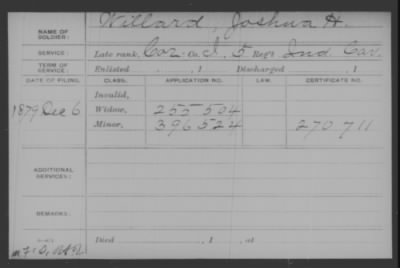 NAME OF SOLDIER: Willard, Joshua H.
SERVICE: Late rank, Cor Co. I, 5 Reg't Ind. Cav.
TERM OF SERVICE: Enlisted , 1 Discharged , 1
DATE OF FILING. CLASS. APPLICATION NO. LAW. CERTIFICATE NO.
Invalid,
1879 Dec 6 Widow, 255 504
Minor, 396 524 270 711
ADDITIONAL SERVICES:
REMARKS:
Died , 1 , at